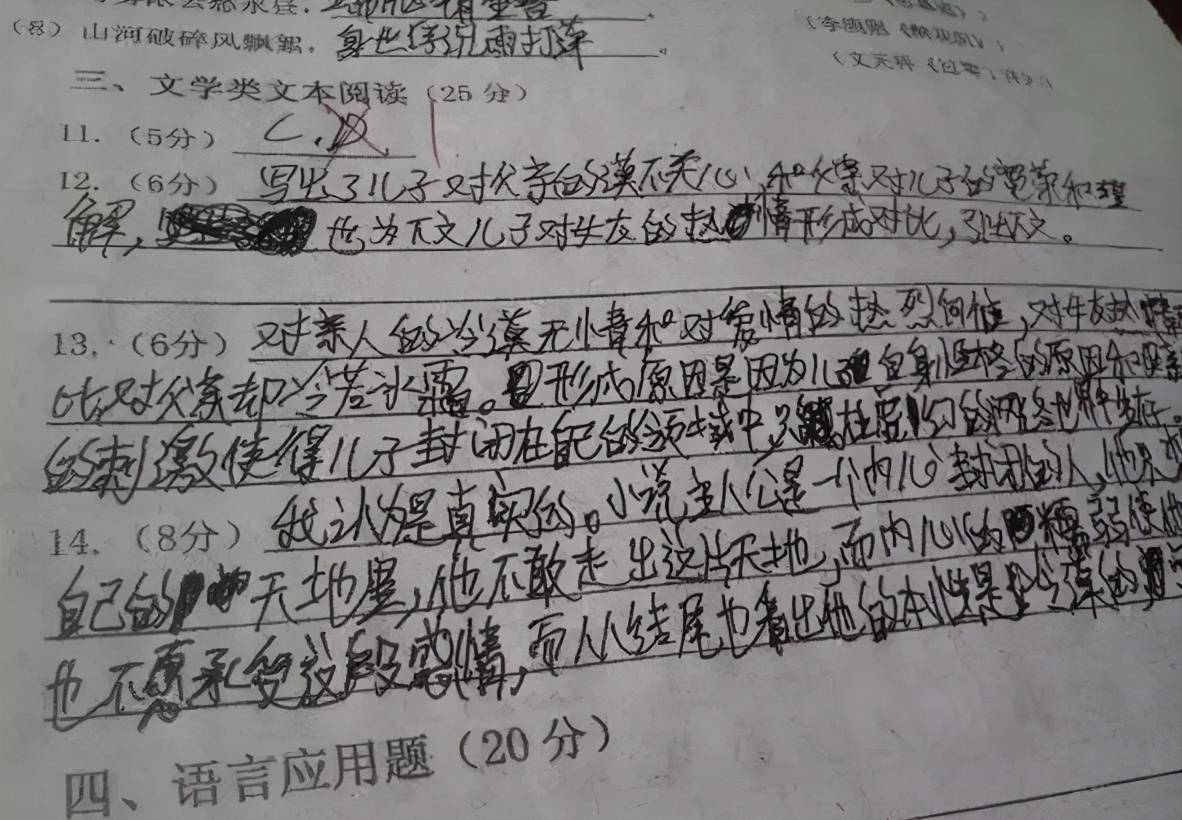 （8）山河破碎风飘絮，身世浮沉雨打萍。
三、文学类文本阅读（25分）
11.（5分）C.D.
12.（6分）写出了儿子对父亲的漠不关心，和父亲对儿子的宽荣和理
解，也为下文儿子对失友的热情形成对比，引出下文。
13.（6分）对亲人的冷漠无情和对爱情的热烈向往，对牛友热情
对父亲却冷若冰霜。形成原因是因为儿自身性格的原因和
的刺激使得儿子封闭在自己的领域中，只在虚幻的网络世界中生存。
14.（8分）我认为是真实的。小说主人公是一个内心封闭的人，他只
自己的天地里，他不敢走出这片天地，而内心的懦弱使他
也不愿承受这段感情，而从结尾也看出他的本性是冷漠的
四、语言应用题（20分）